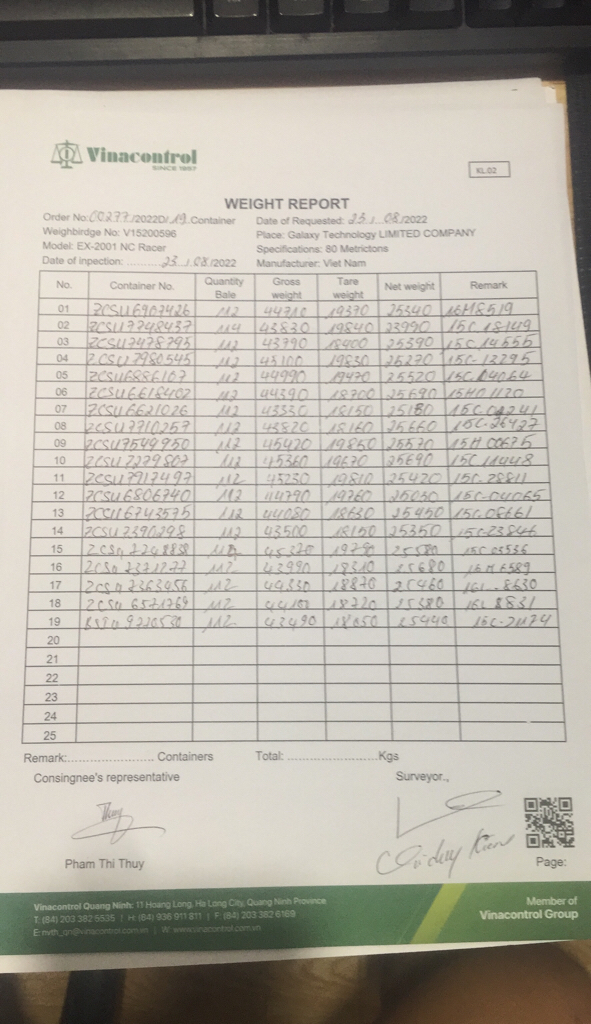 Vinacontrol
SINCE 1957
KL.02
WEIGHT REPORT
Order No: 00277/2022D/19 Container Date of Requested: 23/08/2022
Weighbirdge No: V15200596 Place: Galaxy Technology LIMITED COMPANY
Model: EX-2001 NC Racer Specifications: 80 Metrictons
Date of inpection: 23/08/2022 Manufacturer: Viet Nam
No. Container No. Quantity Bale Gross weight Tare weight Net weight Remark
01 ZCSU6907426 112 44710 19370 25340 16M8519
02 ZCSU7748437 114 43830 19840 23990 15C-18149
03 ZCSU7478795 112 43790 18400 25390 15C-14655
04 ZCSU7980545 112 45100 19830 25270 15C-13295
05 ZCSU6886107 112 44990 19470 25520 15C-04064
06 ZCSU6618402 112 44390 18700 25690 15H01120
07 ZCSU6621026 112 43330 18150 25180 15C-02241
08 ZCSU7710257 112 43820 18160 25660 15C-26427
09 ZCSU7549950 112 45420 19850 25570 15H00675
10 ZCSU7279807 112 45360 19670 25690 15C11448
11 ZCSU7917497 112 45230 19810 25420 15C-28811
12 ZCSU6806740 112 44790 19760 25030 15C-04065
13 ZCSU6743575 112 44080 18630 25450 15C-08661
14 ZCSU7390298 112 43500 18150 25350 15C-23846
15 112 45370 19790 25580
16 112 43990 18310 25680
17 112 44330 18870 25460
18 ZCSU6571769 112 44100 18720 25380 16L 8831
19 112 43490 18050 25440
20
21
22
23
24
25
Remark:........................ Containers Total: ........................Kgs
Consingnee's representative Surveyor.,
Pham Thi Thuy
Page:
Vinacontrol Quang Ninh: 11 Hoang Long, Ha Long City, Quang Ninh Province
T: (84) 203 382 5535 / H: (84) 936 911 811 | F: (84) 203 382 6169
E: nvth_qn@vinacontrol.com.vn | W: www.vinacontrol.com.vn
Member of
Vinacontrol Group